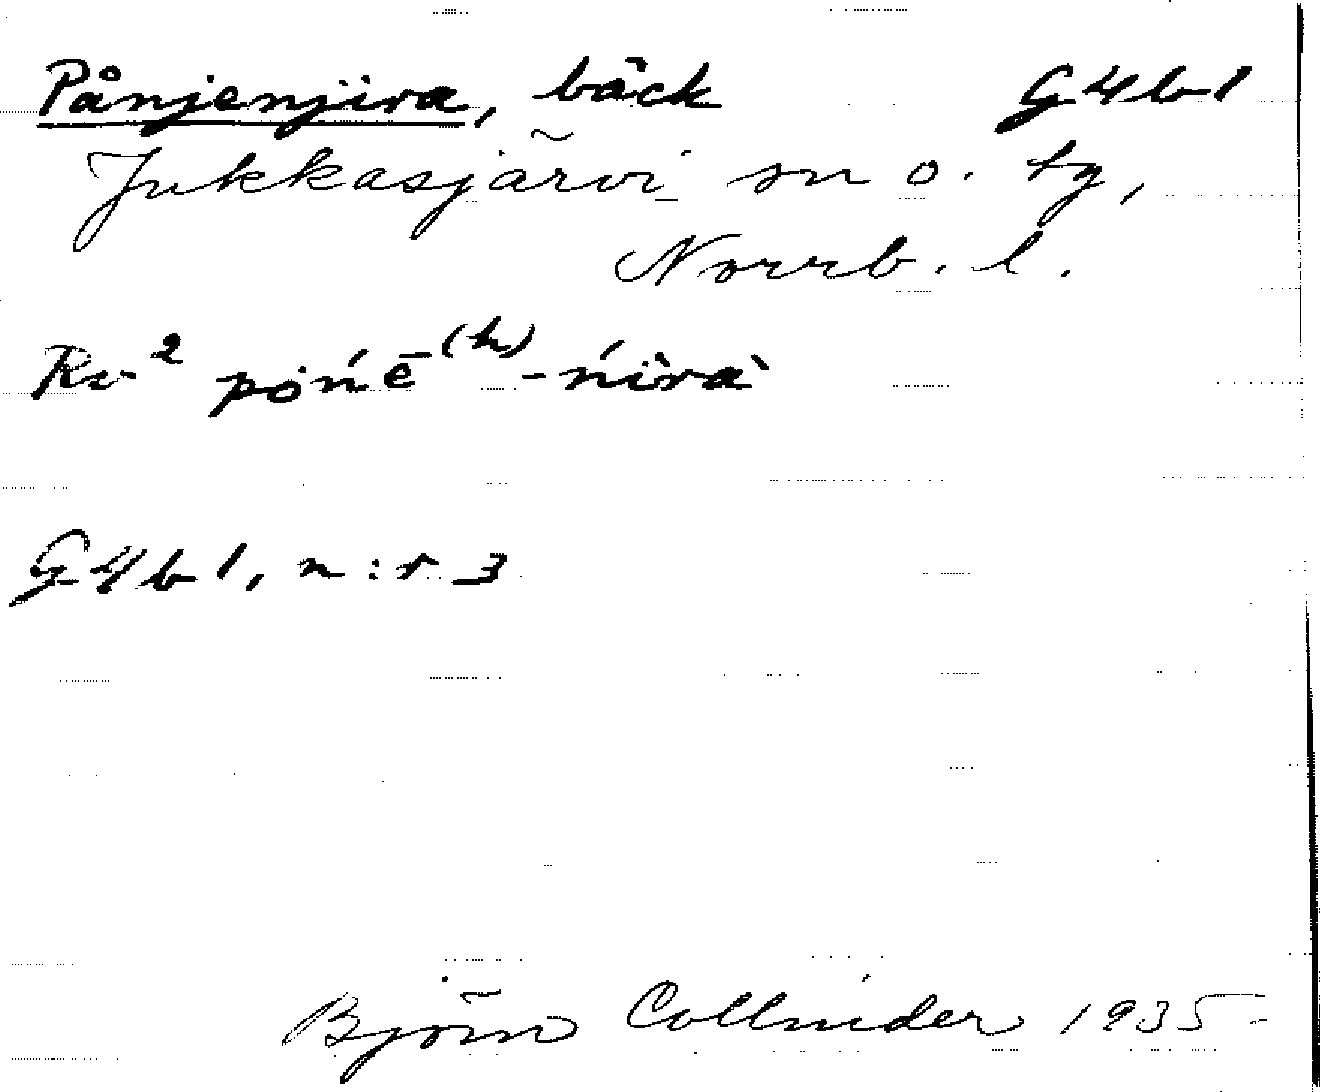 Pånjenjira, bäck G4b1
Jukkasjärvi sn o. tg,
Norrb. l.
Kv² pońē⁽ʰ⁾-ńìrà
G4b1, n:r 3
Björn Collinder 1935